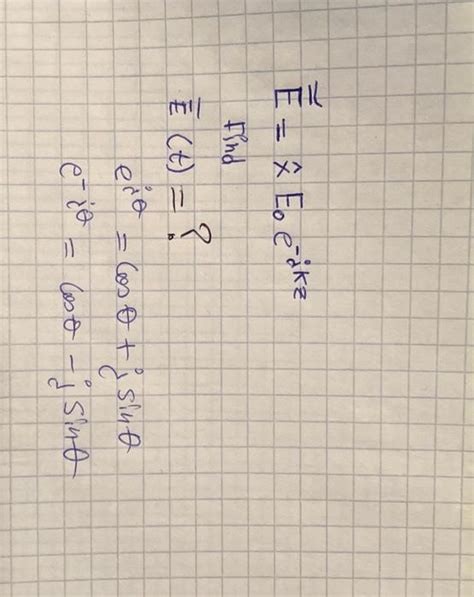 E̿ = x̂ E₀ e^{-jkz}
Find
E̅ (t) = ?
e^{jθ} = Cos θ + j Sin θ
e^{-jθ} = Cos θ - j Sin θ